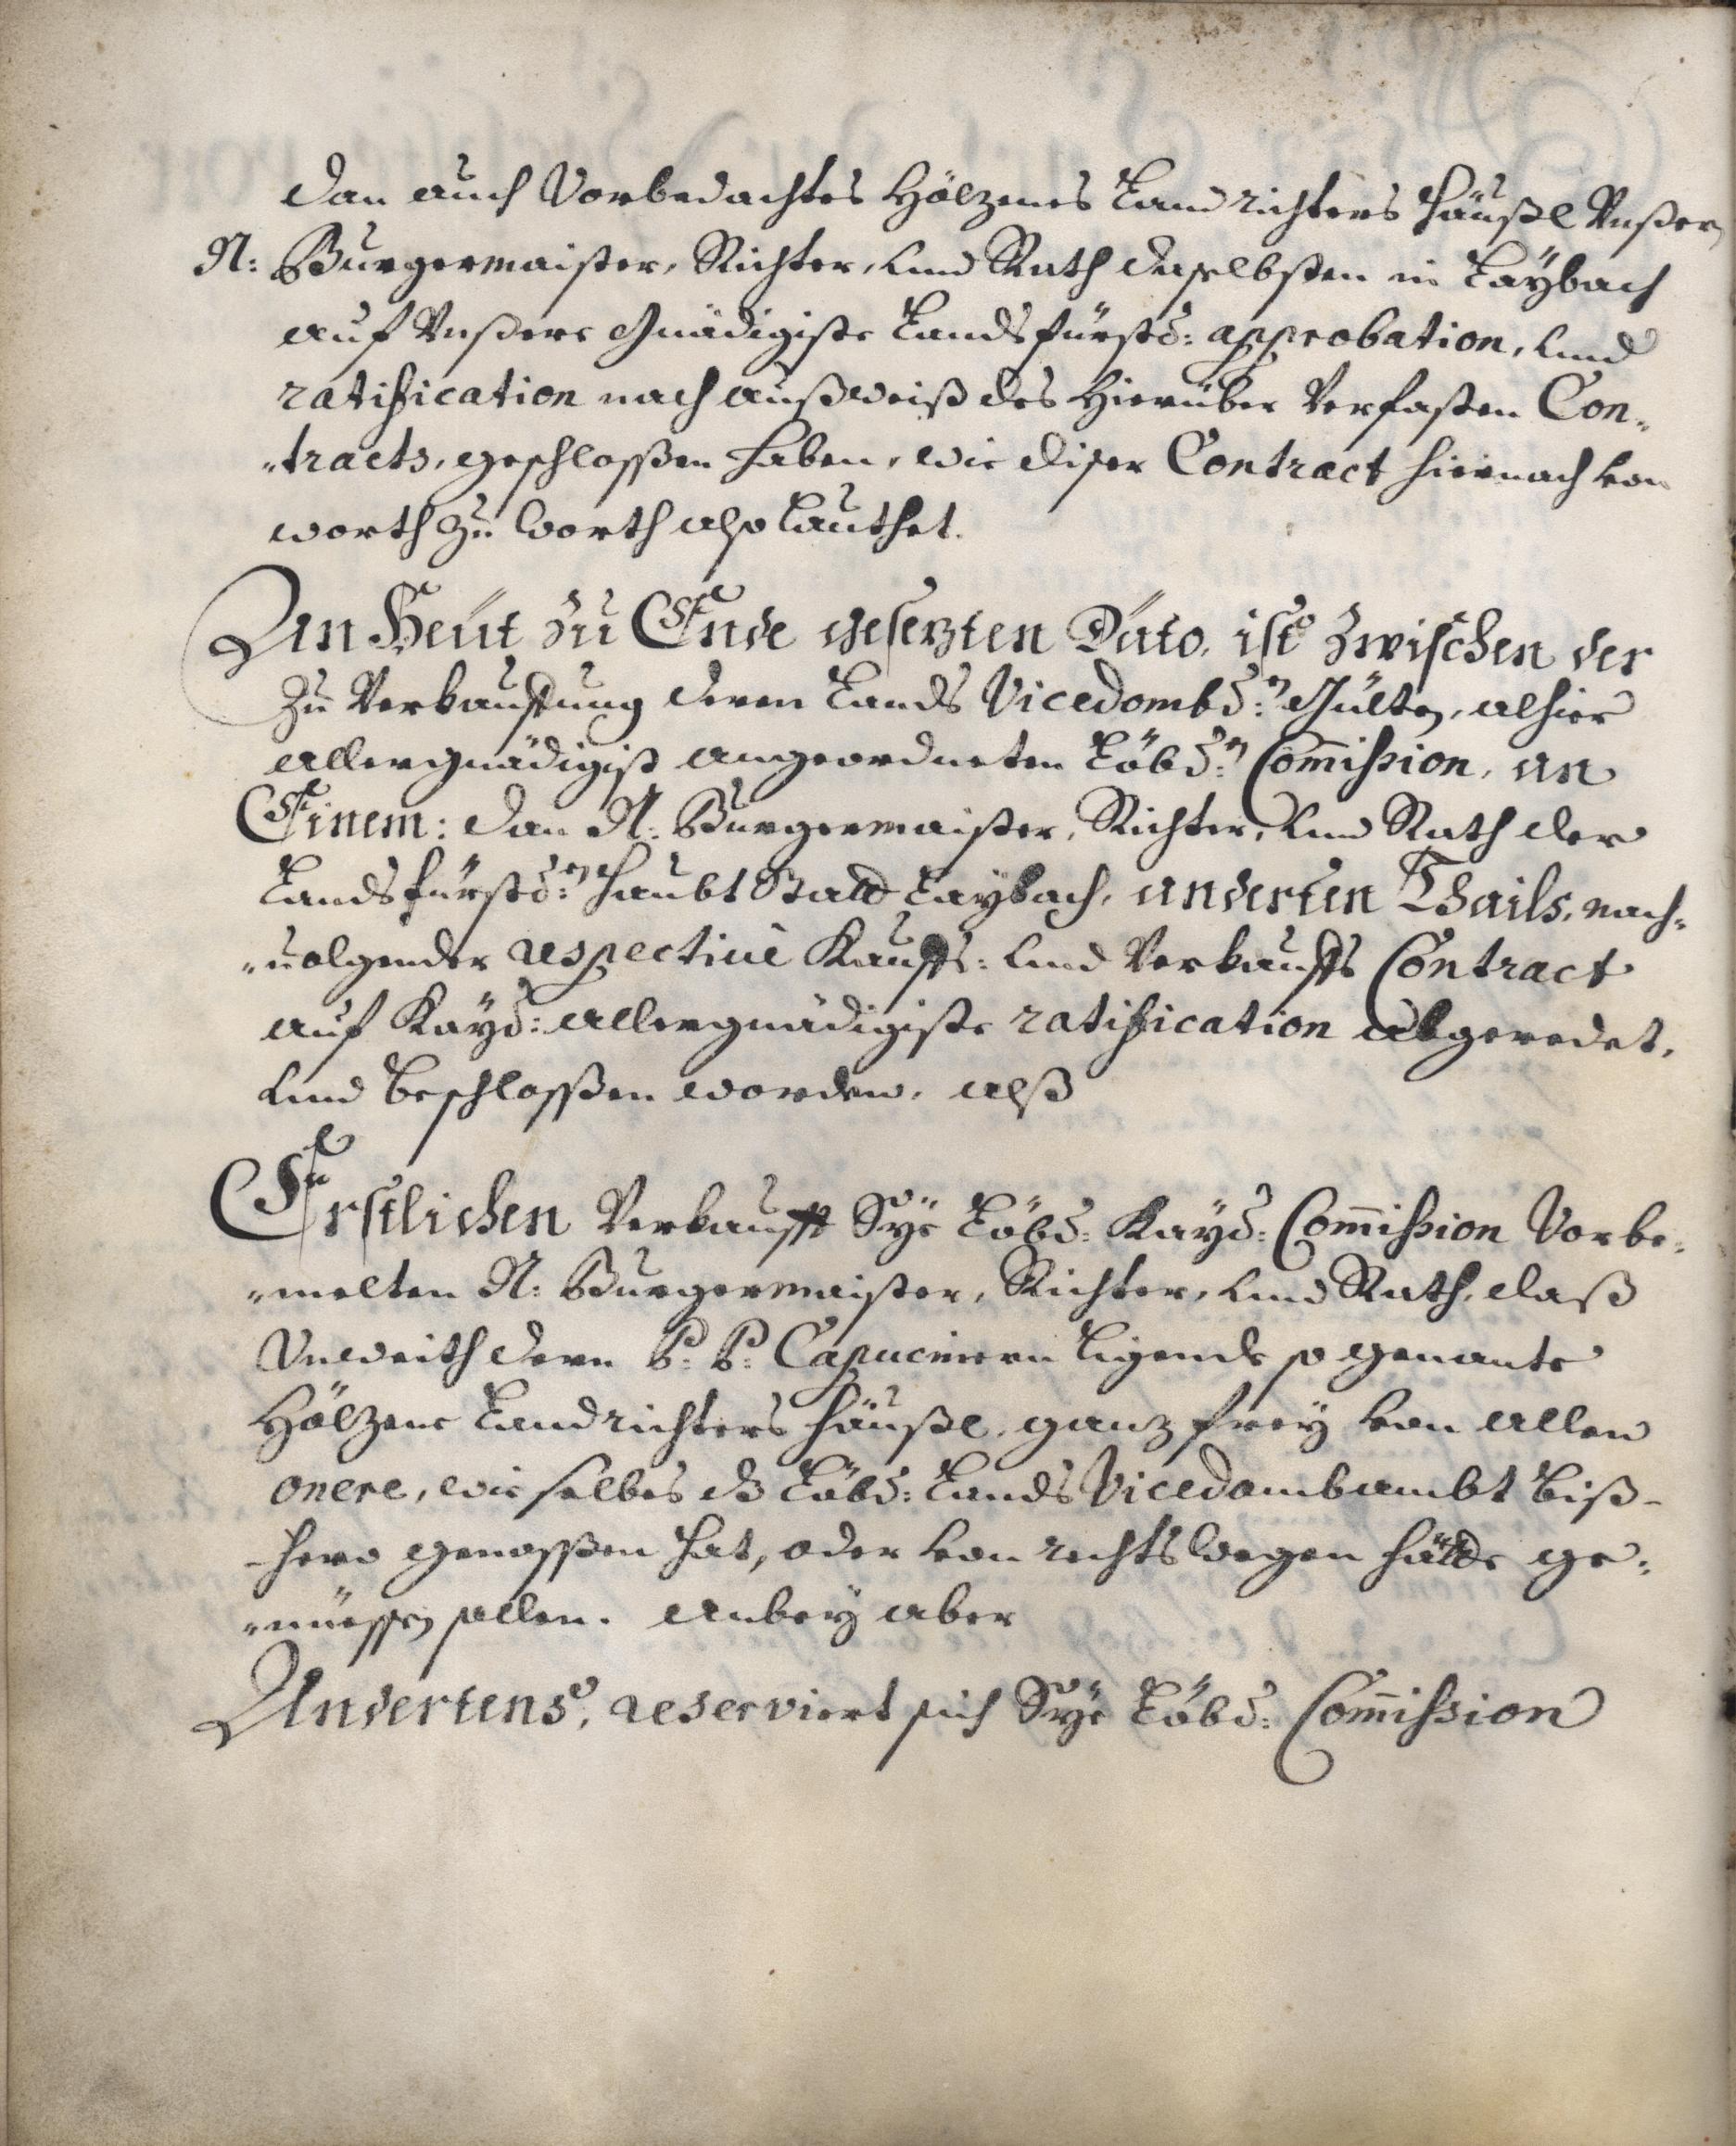 dan auch Vorbedachtes Hölzenes Landrichters Häußl Unßern
N: Burgermaister, Richter, und Rath daselbsten in Laÿbach
auf Unßere Gnädigiste Landsfürstl: approbation, und
ratification nach außweiß des Hierüber Verfasten Con„
„tracts, geschloßen haben, wie diser Contract hiernach von
worth zu worth also Lauthet.
An Heut zu Ende gesezten Dato, ist zwischen der
zu Verkauffung deren Lands Vicedombl:en Gülten, alhier
allergnädigist angeordneten Löbl:en Com̄ission, an
Einem: dan N: Burgermaister, Richter, und Rath der
Landsfürstl:en Haubt Statt Laybach, anderten Thails, nach„
„uolgender respectiuè Kauffs: und Verkauffs Contract
auf Kaÿl: allergnädigiste ratification abgeredet,
und beschloßen worden, alß
Erstlichen Verkaufft Sÿe Löbl: Kaÿl: Com̄ission Vorbe„
„melten N: Burgermaister, Richter, und Rath, daß
Unweith dern P: P: Capucinern Ligende so genante
Hölzene Landrichters Häußl, ganz freÿ von allen
onere, wie selbes dz Löbl: Lands Vicedombambt biß-
-hero genoßen hat, oder von rechts wegen hätte ge„
„nüessen sollen. anbeÿ aber
Andertens, reserviert sich Sÿe Löbl: Com̄ission